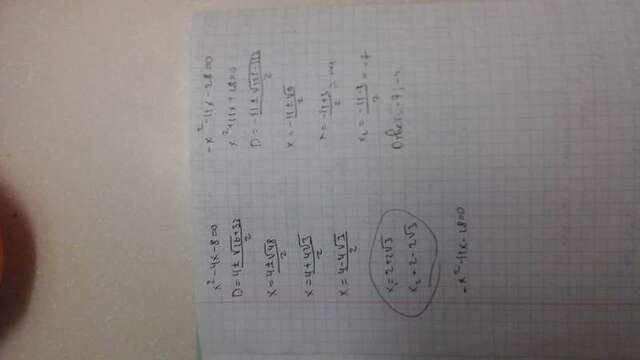 x² - 4x - 8 = 0
D = 4 ± √16+32 / 2
x = 4 ± √48 / 2
x = 4 + 4√3 / 2
x = 4 - 4√3 / 2
x₁ = 2 + 2√3
x₂ = 2 - 2√3
-x² - 11x - 28 = 0
-x² - 11x - 28 = 0
x² + 11x + 28 = 0
D = -11 ± √121 - 112 / 2
x = -11 ± √9 / 2
x = -11 + 3 / 2 =
x₂ = -11 - 3 / 2 = -7
Ответ: -7; -4